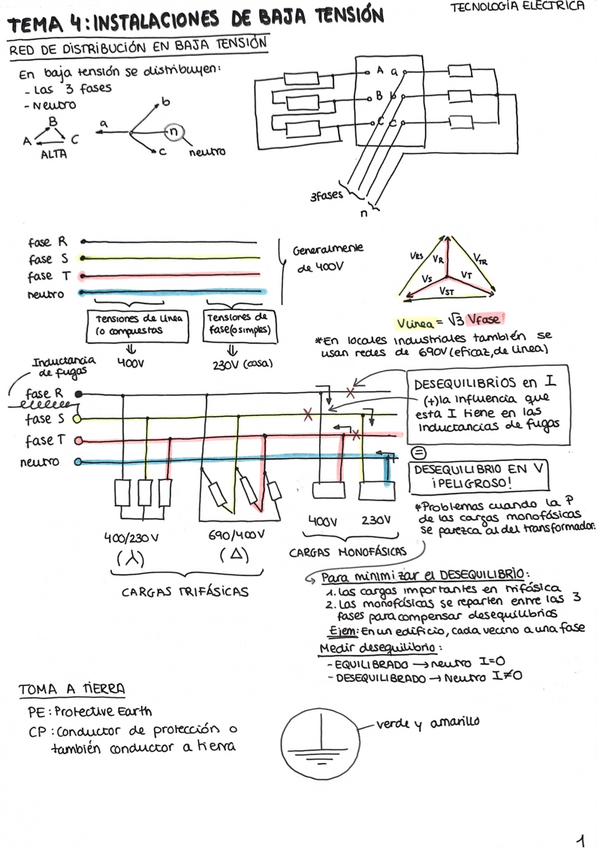 TECNOLOGÍA ELÉCTRICA
TEMA 4: INSTALACIONES DE BAJA TENSIÓN
RED DE DISTRIBUCIÓN EN BAJA TENSIÓN
En baja tensión se distribuyen:
- Las 3 fases
- Neutro
B
A C
ALTA
a
b
n
c
neutro
A a
B b
C c
3 fases
n
fase R
fase S
fase T
neutro
Generalmente
de 400V
Tensiones de línea
(o compuestas
400V
Tensiones de
fase (o simples)
230V (casa)
VRS VR VTR
VS VT
VST
Vlinea = √3 Vfase
*En locales industriales también se
usan redes de 690V (eficaz, de línea)
Inductancia
de fugas
fase R
fase S
fase T
neutro
DESEQUILIBRIOS en I
(+) la influencia que
esta I tiene en las
inductancias de fugas
=
DESEQUILIBRIO EN V
¡PELIGROSO!
*Problemas cuando la P
de las cargas monofásicas
se parezca al del transformador.
400/230V
(⅄)
690/400V
(Δ)
400V
230V
CARGAS TRIFÁSICAS
CARGAS MONOFÁSICAS
Para minimizar el DESEQUILIBRIO:
1. Las cargas importantes en trifásica
2. Las monofásicas se reparten entre las 3
fases para compensar desequilibrios
Ejem: En un edificio, cada vecino a una fase
Medir desequilibrio:
- EQUILIBRADO → neutro I=0
- DESEQUILIBRADO → Neutro I≠0
TOMA A TIERRA
PE: Protective Earth
CP: Conductor de protección o
también conductor a tierra
verde y amarillo
1